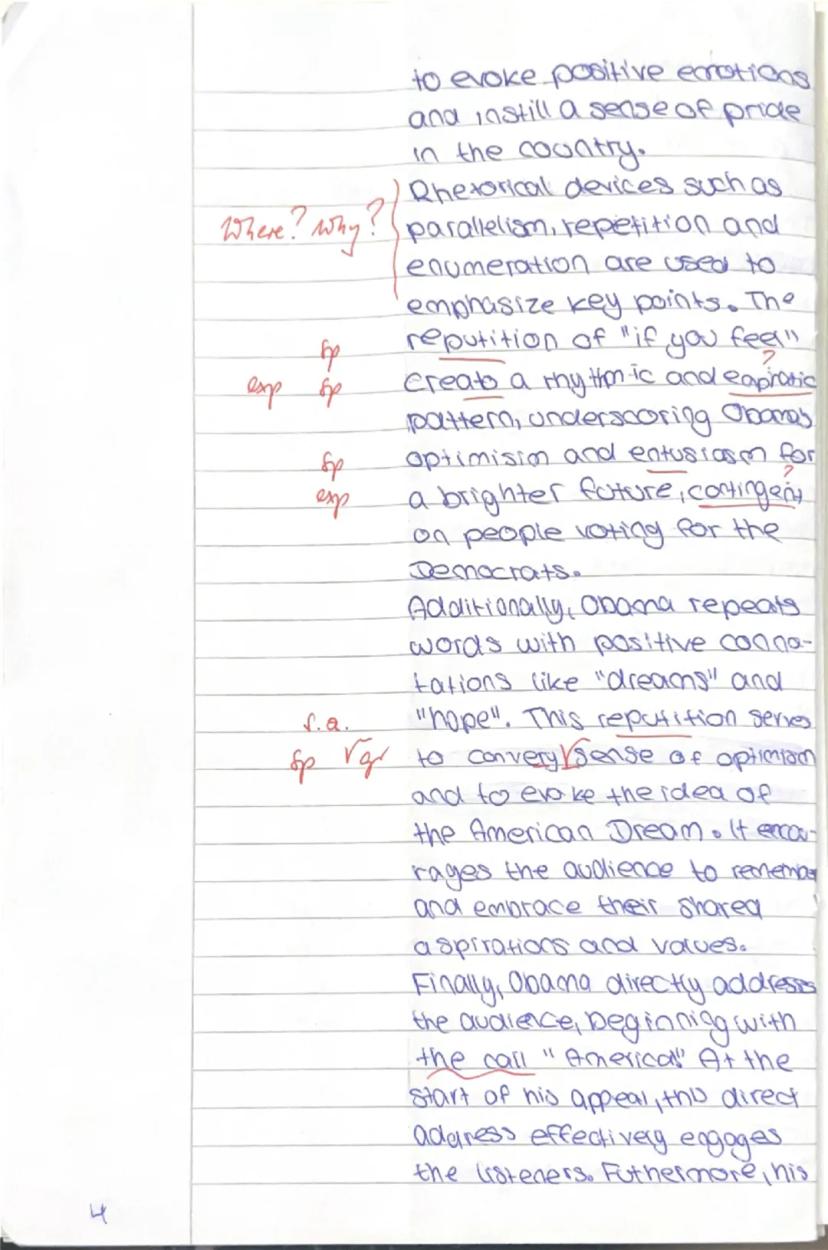 to evoke positive emotions
and instill a sense of pride
in the country.
Rhetorical devices such as
Where? Why? parallelism, repetition and
enumeration are used to
emphasize key points. The
sp reputition of "if you feel"
exp sp creato a rhythmic and eaphratic ?
pattern, underscoring Obamas
sp optimision and entusiasm for
exp a brighter future, contingent ?
on people voting for the
Democrats.
Additionally, Obama repeats
words with positive conno-
tations like "dreams" and
s.a. "hope". This reputition serves
sp √gr to convery √ sense of optimism
and to evoke the idea of
the American Dream. It encou-
rages the audience to remember
and embrace their shared
aspirations and values.
Finally, Obama directly addresses
the audience, beginning with
the call "America!" At the
start of his appeal, this direct
address effectively engages
the listeners. Futhermore, his
4